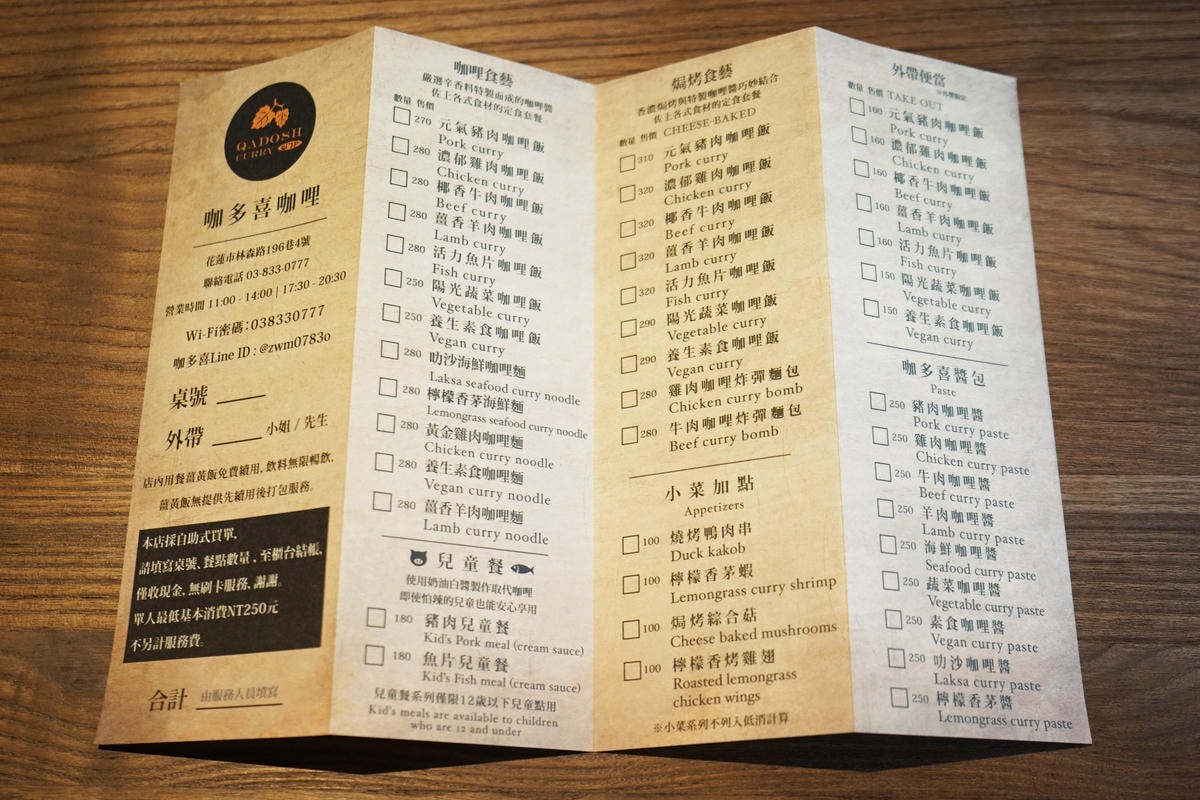 QADOSH
CURRY
咖多喜咖哩
花蓮市林森路196巷4號
聯絡電話 03-833-0777
營業時間 11:00 - 14:00 | 17:30 - 20:30
Wi-Fi密碼:038330777
咖多喜Line ID : @zwm0783o
桌號
外帶 小姐 / 先生
店內用餐薑黃飯免費續用,飲料無限暢飲,
薑黃飯無提供先續用後打包服務。
本店採自助式買單,
請填寫桌號、餐點數量,至櫃台結帳,
僅收現金,無刷卡服務,謝謝。
單人最低基本消費NT250元
不另計服務費。
合計 由服務人員填寫
咖哩食藝
嚴選辛香料特製而成的咖哩醬
佐上各式食材的定食套餐
數量 售價
270 元氣豬肉咖哩飯
Pork curry
280 濃郁雞肉咖哩飯
Chicken curry
280 椰香牛肉咖哩飯
Beef curry
280 薑香羊肉咖哩飯
Lamb curry
280 活力魚片咖哩飯
Fish curry
250 陽光蔬菜咖哩飯
Vegetable curry
250 養生素食咖哩飯
Vegan curry
280 叻沙海鮮咖哩麵
Laksa seafood curry noodle
280 檸檬香茅海鮮麵
Lemongrass seafood curry noodle
280 黃金雞肉咖哩麵
Chicken curry noodle
280 養生素食咖哩麵
Vegan curry noodle
280 薑香羊肉咖哩麵
Lamb curry noodle
兒童餐
使用奶油白醬製作取代咖哩
即使怕辣的兒童也能安心享用
180 豬肉兒童餐
Kid's Pork meal (cream sauce)
180 魚片兒童餐
Kid's Fish meal (cream sauce)
兒童餐系列僅限12歲以下兒童點用
Kid's meals are available to children
who are 12 and under
焗烤食藝
香濃焗烤與特製咖哩醬巧妙結合
佐上各式食材的定食套餐
數量 售價 CHEESE-BAKED
310 元氣豬肉咖哩飯
Pork curry
320 濃郁雞肉咖哩飯
Chicken curry
320 椰香牛肉咖哩飯
Beef curry
320 薑香羊肉咖哩飯
Lamb curry
320 活力魚片咖哩飯
Fish curry
290 陽光蔬菜咖哩飯
Vegetable curry
290 養生素食咖哩飯
Vegan curry
280 雞肉咖哩炸彈麵包
Chicken curry bomb
280 牛肉咖哩炸彈麵包
Beef curry bomb
小菜加點
Appetizers
100 燒烤鴨肉串
Duck kakob
100 檸檬香茅蝦
Lemongrass curry shrimp
100 焗烤綜合菇
Cheese baked mushrooms
100 檸檬香烤雞翅
Roasted lemongrass
chicken wings
※小菜系列不列入低消計算
外帶便當
數量 售價 TAKE OUT
160 元氣豬肉咖哩飯
Pork curry
160 濃郁雞肉咖哩飯
Chicken curry
160 椰香牛肉咖哩飯
Beef curry
160 薑香羊肉咖哩飯
Lamb curry
160 活力魚片咖哩飯
Fish curry
150 陽光蔬菜咖哩飯
Vegetable curry
150 養生素食咖哩飯
Vegan curry
咖多喜醬包
Paste
250 豬肉咖哩醬
Pork curry paste
250 雞肉咖哩醬
Chicken curry paste
250 牛肉咖哩醬
Beef curry paste
250 羊肉咖哩醬
Lamb curry paste
250 海鮮咖哩醬
Seafood curry paste
250 蔬菜咖哩醬
Vegetable curry paste
250 素食咖哩醬
Vegan curry paste
250 叻沙咖哩醬
Laksa curry paste
250 檸檬香茅醬
Lemongrass curry paste